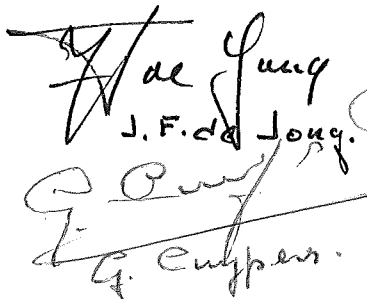 de Jong
J. F. de Jong.
G. Cuypers.